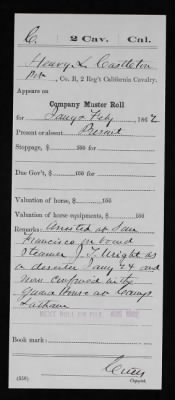 C. 2 Cav. Cal.
Henry L. Castleton
Pvt, Co. B, 2 Reg't California Cavalry.
Appears on
Company Muster Roll
for Jany & Feby, 1862
Present or absent Present
Stoppage, $ 100 for
Due Gov't, $ 100 for
Valuation of horse, $ 100
Valuation of horse equipments, $ 100
Remarks: Arrested at San
Francisco on board
steamer J. T. Wright as
a deserter Jany 24 and
now confined in the
Guard House at Camp
Latham
Book mark:
(358) Copyist.